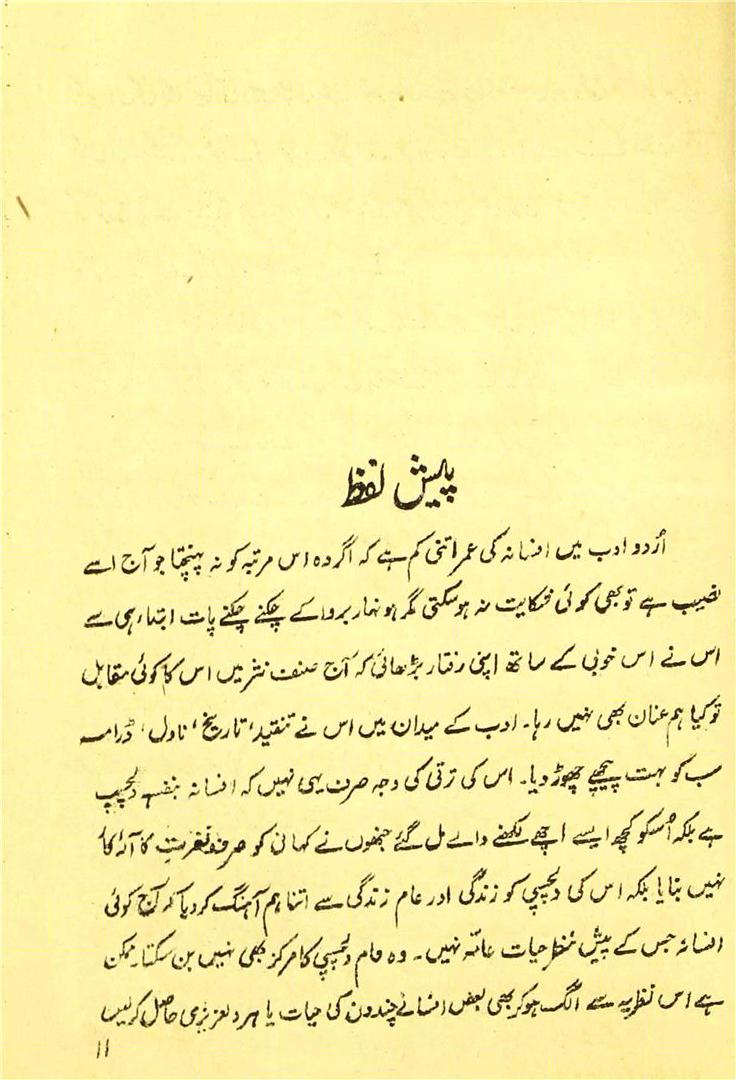 پیش لفظ
اُردو ادب میں افسانہ کی عمر اتنی کم ہے کہ اگر وہ اس مرتبہ کو نہ پہنچتا جو آج اسے
نصیب ہے تو بھی کوئی شکایت نہ ہو سکتی مگر ہونہار بروا کے چکنے چکنے پات ابتداء ہی سے
اس نے اس خوبی کے ساتھ اپنی رفتار بڑھائی کہ آج صنف نثر میں اس کا کوئی مقابل
تو کیا ہم عنان بھی نہیں رہا۔ ادب کے میدان میں اس نے تنقید، تاریخ، ناول، ڈرامہ
سب کو بہت پیچھے چھوڑ دیا۔ اس کی ترقی کی وجہ صرف یہی نہیں کہ افسانہ بنفسہٖ دلچسپ
ہے بلکہ اُسکو کچھ ایسے اچھے لکھنے والے مل گئے جنھوں نے کہانی کو صرف تفریح کا آلہ کا
نہیں بنایا بلکہ اس کی دلچسپی کو زندگی اور عام زندگی سے اتنا ہم آہنگ کر دیا کہ آج کوئی
افسانہ جس کے پیش نظر حیات عامّہ نہیں۔ وہ عام دلچسپی کا مرکز بھی نہیں بن سکتا۔ ممکن
ہے اس نظریہ سے الگ ہو کر بھی بعض افسانے چند دن کی حیات یا ہر دلعزیزی حاصل کر لیں
۱۱